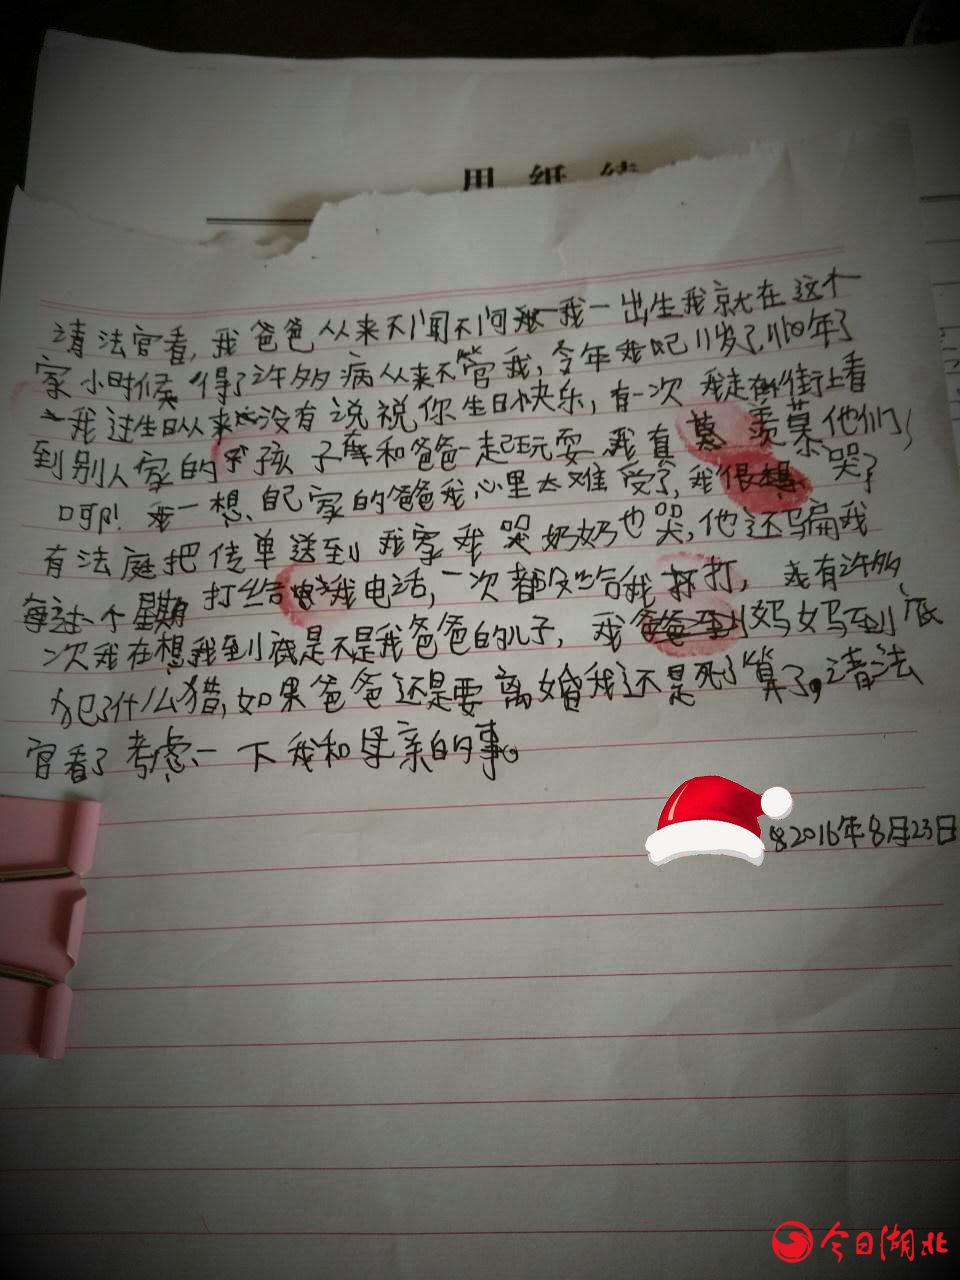 用纸续
请法官看,我爸爸从来不闻不问我一出生我就在这个
家小时候得了许多病从来不管我,今年我吧11岁了,11個年了
我过生日从来没有说祝你生日快乐,有一次我走在街上看
到别人家的孩子和爸爸一起玩耍我真羡慕他们,
呵!我一想自己家的爸爸我心里太难受了,我哭了
有法庭把传单送到我家我哭奶奶也哭,他还骗我
每过一个星期打给我电话,一次都没给我打,我有许多
次我在想我到底是不是我爸爸的儿子,我妈妈到底
犯了什么猎,如果爸爸还是要离婚我还是死了算了,请法
官看了考虑一下我和母亲的事。
2016年8月23日
今日湖北